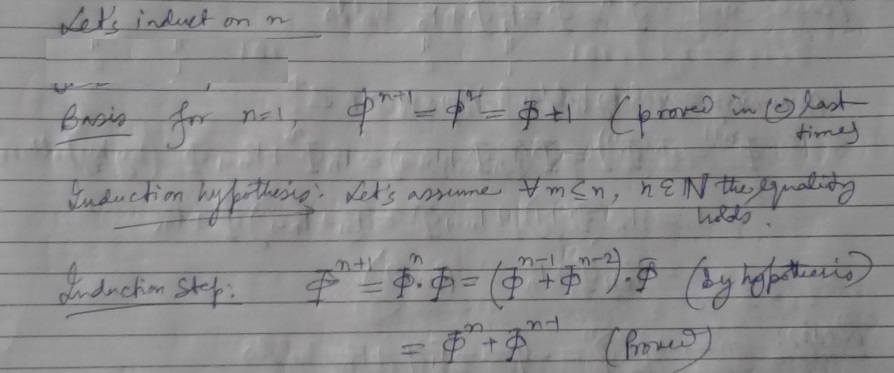 Let's induct on n
Basis for n=1, Φ^{n+1} = Φ^2 = Φ+1 (proved in (c) last
times
Induction hypothesis: Let's assume ∀ m ≤ n, n ∈ ℕ the equality
holds.
Induction Step: Φ^{n+1} = Φ^n · Φ = (Φ^{n-1} + Φ^{n-2}) · Φ (by hypothesis)
= Φ^n + Φ^{n-1} (Proved)